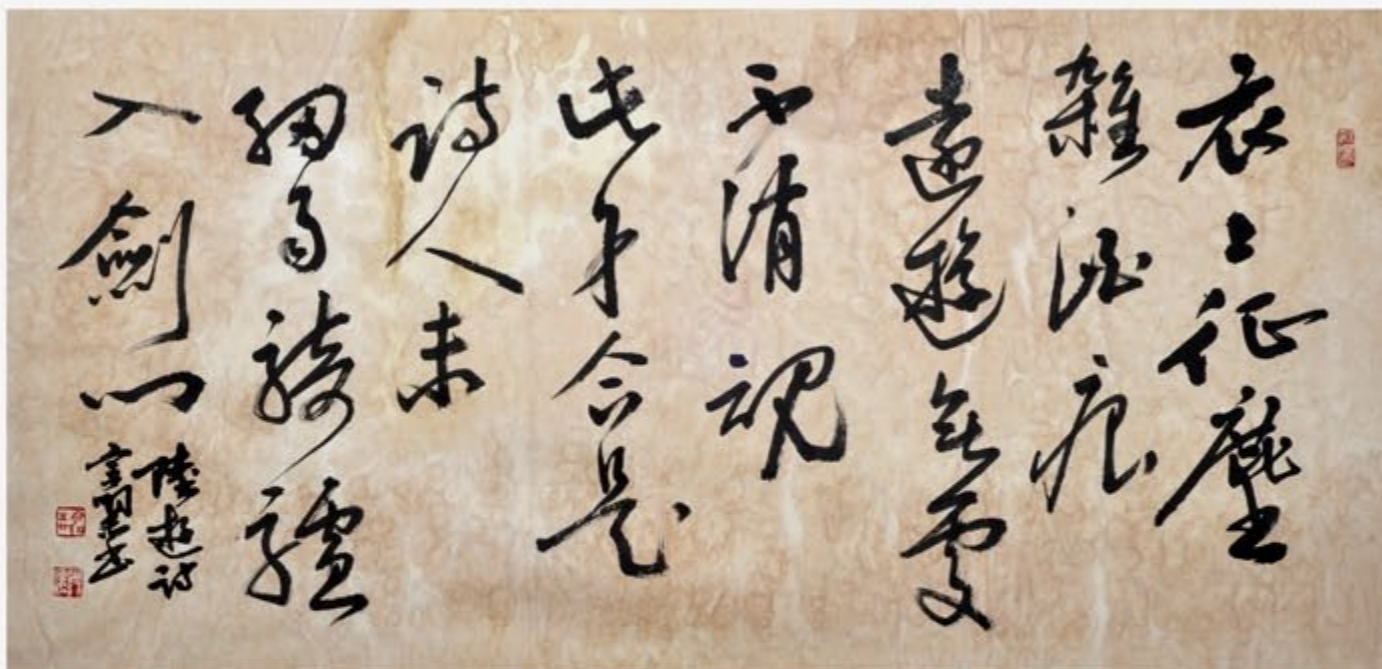 衣上征塵
雜酒痕
遠遊無處
不消魂
此身合是
詩人未
細雨騎驢
入劍門
陸遊詩